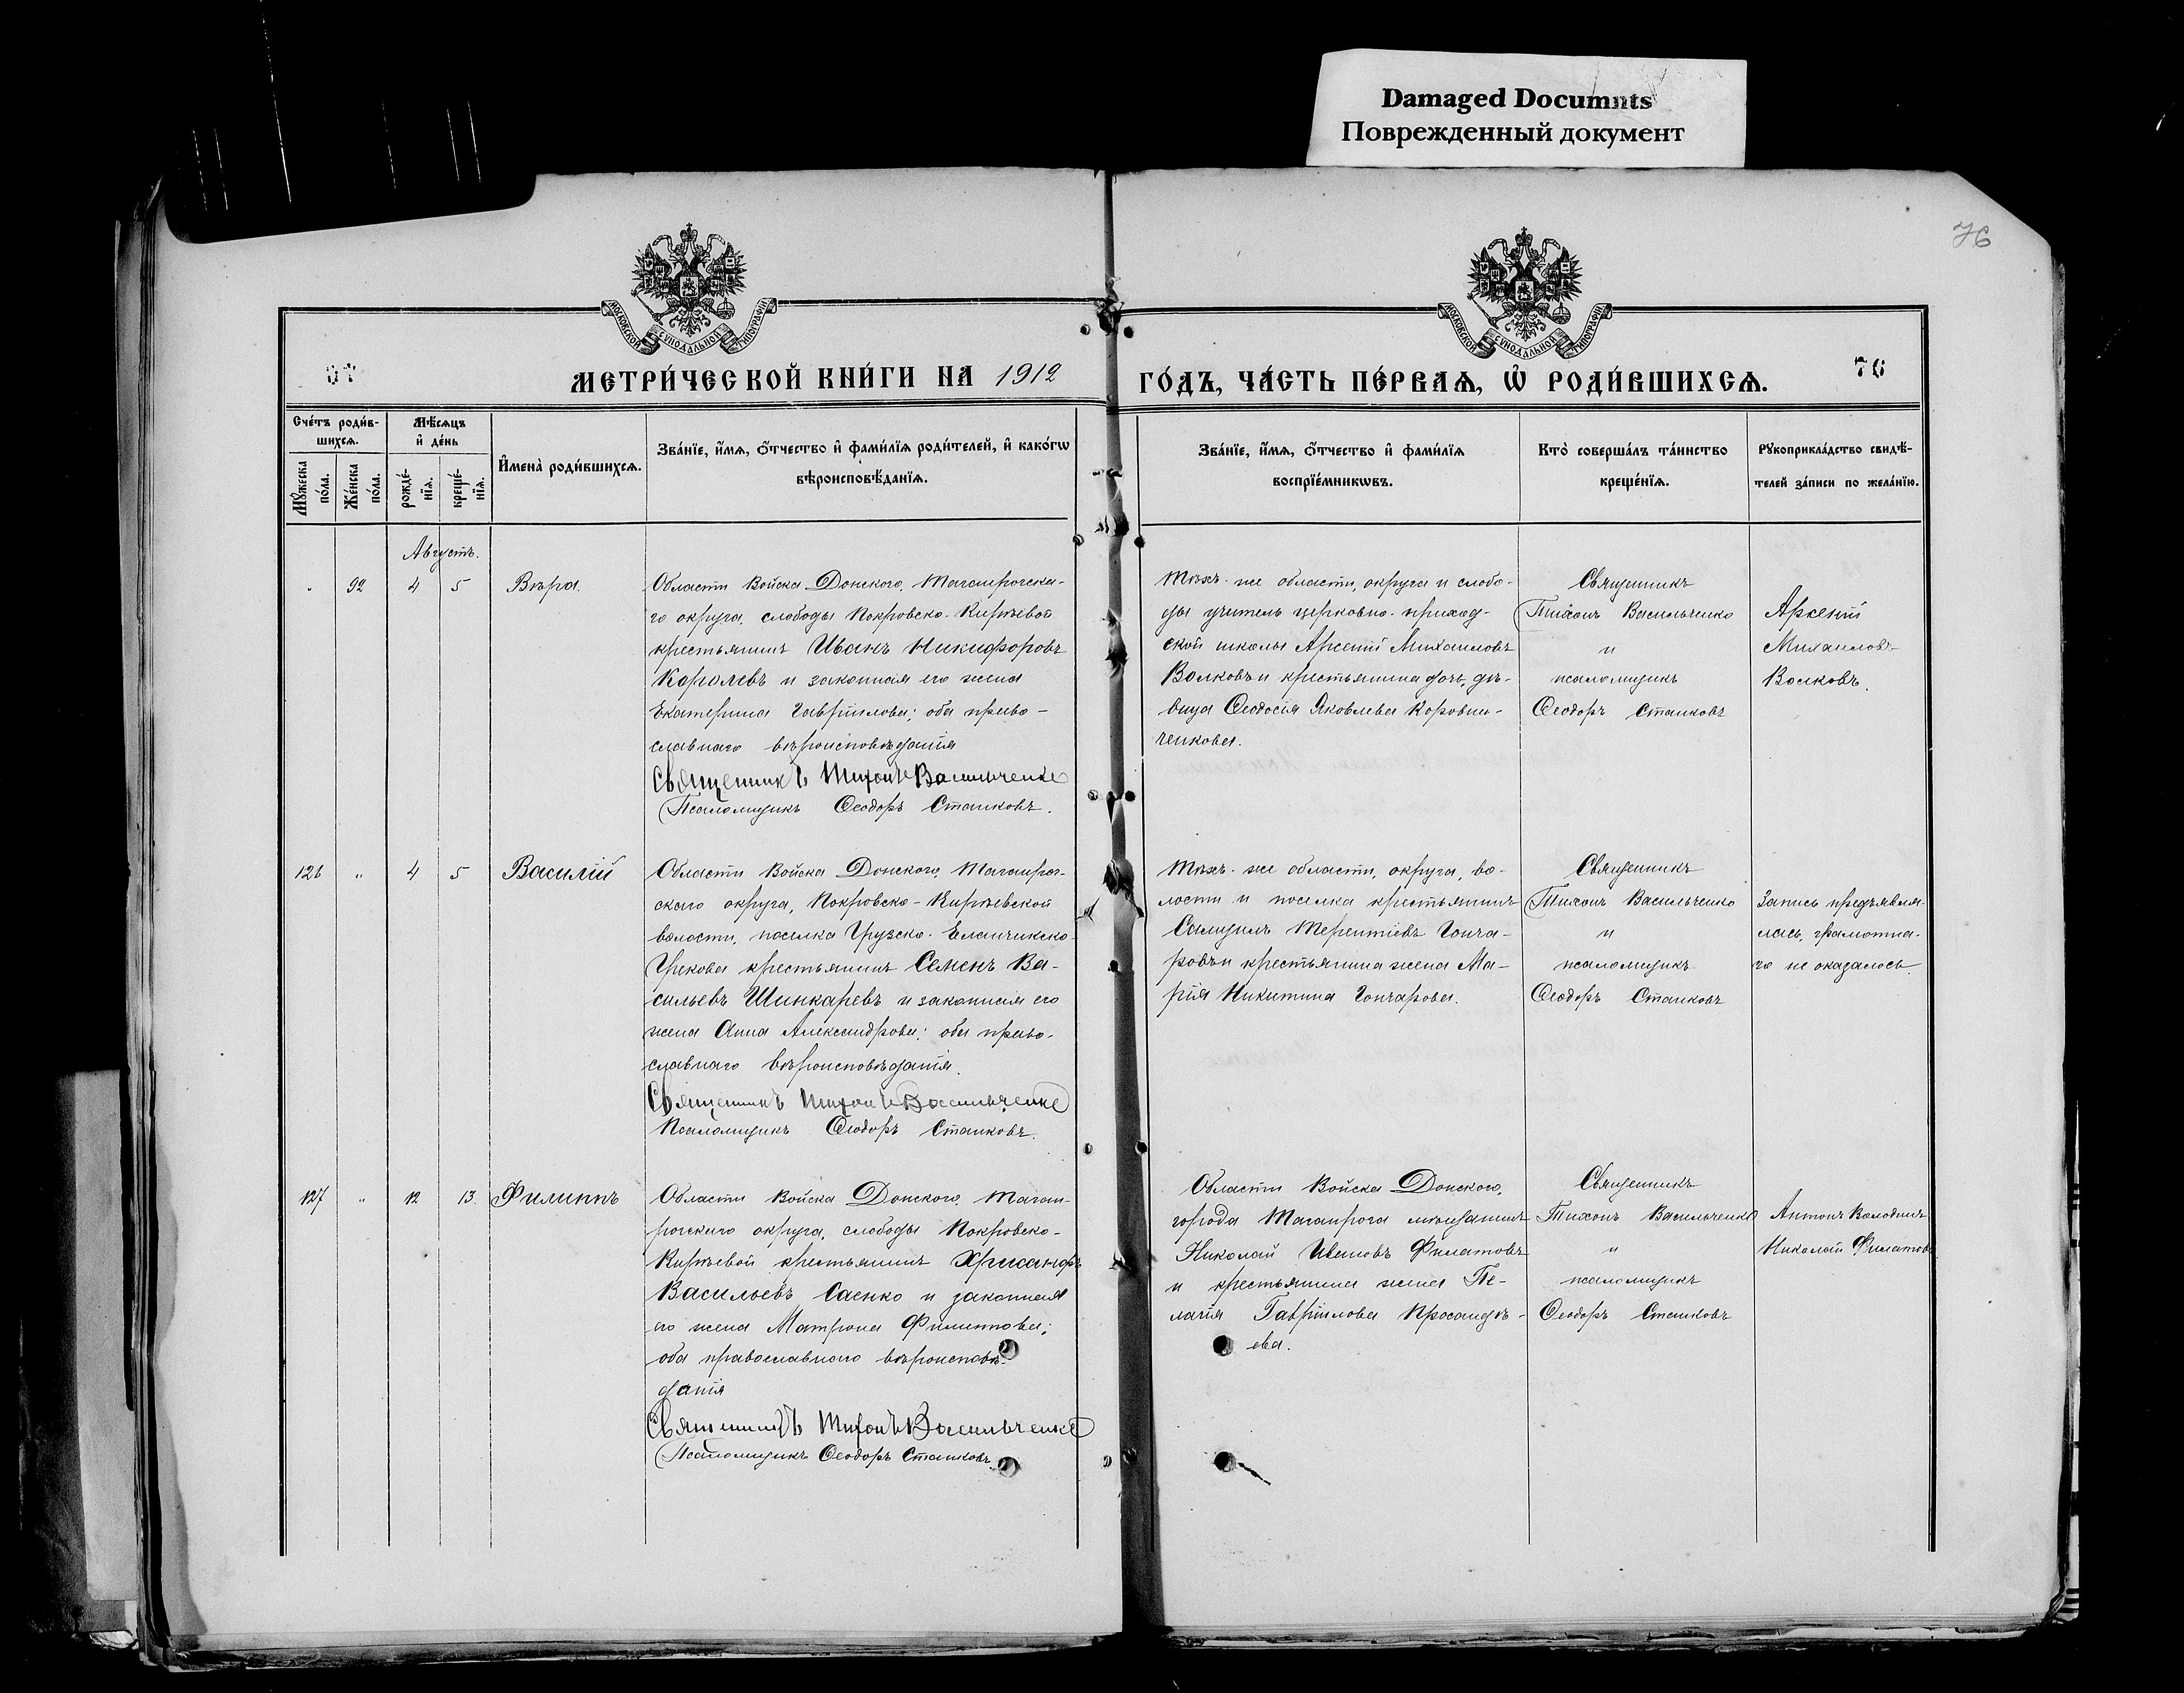 Damaged Documnts
Поврежденный документ
76
МОСКОВСКОЙ СУНОДАЛЬНОЙ ТИПОГРАФІИ
МОСКОВСКОЙ СУНОДАЛЬНОЙ ТИПОГРАФІИ
МЕТРИ́ЧЕСКОЙ КНИ́ГИ НА 1912
ГО́ДЪ, ЧА́СТЬ ПЕ́РВАѦ, Ѡ҆ РОДИ́ВШИХСѦ.
76
Сче́тъ роди́в-
шихсѧ.
Мꙋ́жеска
по́ла.
Же́нска
по́ла.
Мѣ́сѧцъ
и҆ де́нь
рожде́-
нїѧ.
креще́-
нїѧ.
И҆мена̀ роди́вшихсѧ.
Зва́нїе, и҆́мѧ, ѻ҆́тчество и҆ фами́лїѧ роди́телей, и҆ како́гѡ
вѣроисповѣ́данїѧ.
Зва́нїе, и҆́мѧ, ѻ҆́тчество и҆ фами́лїѧ
воспрїе́мникѡвъ.
Кто̀ соверша́лъ та́инство
креще́нїѧ.
Рꙋкоприкла́дство свидѣ́-
телей за́писи по жела́нїю.
Августъ.
92 4 5 Вѣра.
Области Войска Донского, Таганрогска-
го округа, слободы Покровско-Кирѣевой
крестьянинъ Иванъ Никифоровъ
Королевъ и законная его жена
Екатерина Гавріилова; оба право-
славнаго вѣроисповѣданія
Священникъ Тихонъ Васильченко
Псаломщикъ Ѳеодоръ Станковъ.
Тѣхъ-же области, округа и слобо-
ды учитель церковно-приход-
ской школы Арсеній Михаиловъ
Волковъ и крестьянина дочь, дѣ-
вица Ѳеодосія Яковлева Коровни-
ченкова.
Священникъ
Тихонъ Васильченко
и
псаломщикъ
Ѳеодоръ Станковъ
Арсеній
Михаиловъ
Волковъ.
126 " 4 5 Василій
Области Войска Донского, Таганрог-
скаго округа, Покровско-Кирѣевской
волости, поселка Грузско-Еланчикско-
Грекова крестьянинъ Семенъ Ва-
сильевъ Шинкаревъ и законная его
жена Анна Александрова; оба право-
славнаго вѣроисповѣданія.
Священникъ Тихонъ Васильченко
Псаломщикъ Ѳеодоръ Станковъ.
Тѣхъ-же области, округа, во-
лости и поселка крестьянинъ
Терентіевъ Гонча-
ровъ и крестьянина жена Ма-
рія Никитина Гончарова.
Священникъ
Тихонъ Васильченко
и
псаломщикъ
Ѳеодоръ Станковъ
Запись предъявля-
лась, грамотна-
го не оказалось.
127 " 12 13 Филиппъ
Области Войска Донского, Таган-
рогскаго округа, слободы Покровско-
Кирѣевой крестьянинъ Хрисанфъ
Васильевъ Саенко и законная
его жена Матрона Филиппова;
оба православнаго вѣроисповѣ-
данія
Священникъ Тихонъ Васильченко
Псаломщикъ Ѳеодоръ Станковъ.
Области Войска Донского,
города Таганрога мѣщанинъ
Николай Ивановъ Филатовъ
и крестьянина жена Пе-
лагія Гавріилова Просандѣ-
ева.
Священникъ
Тихонъ Васильченко
и
псаломщикъ
Ѳеодоръ Станковъ
Антонъ Володинъ
Николай Филатовъ